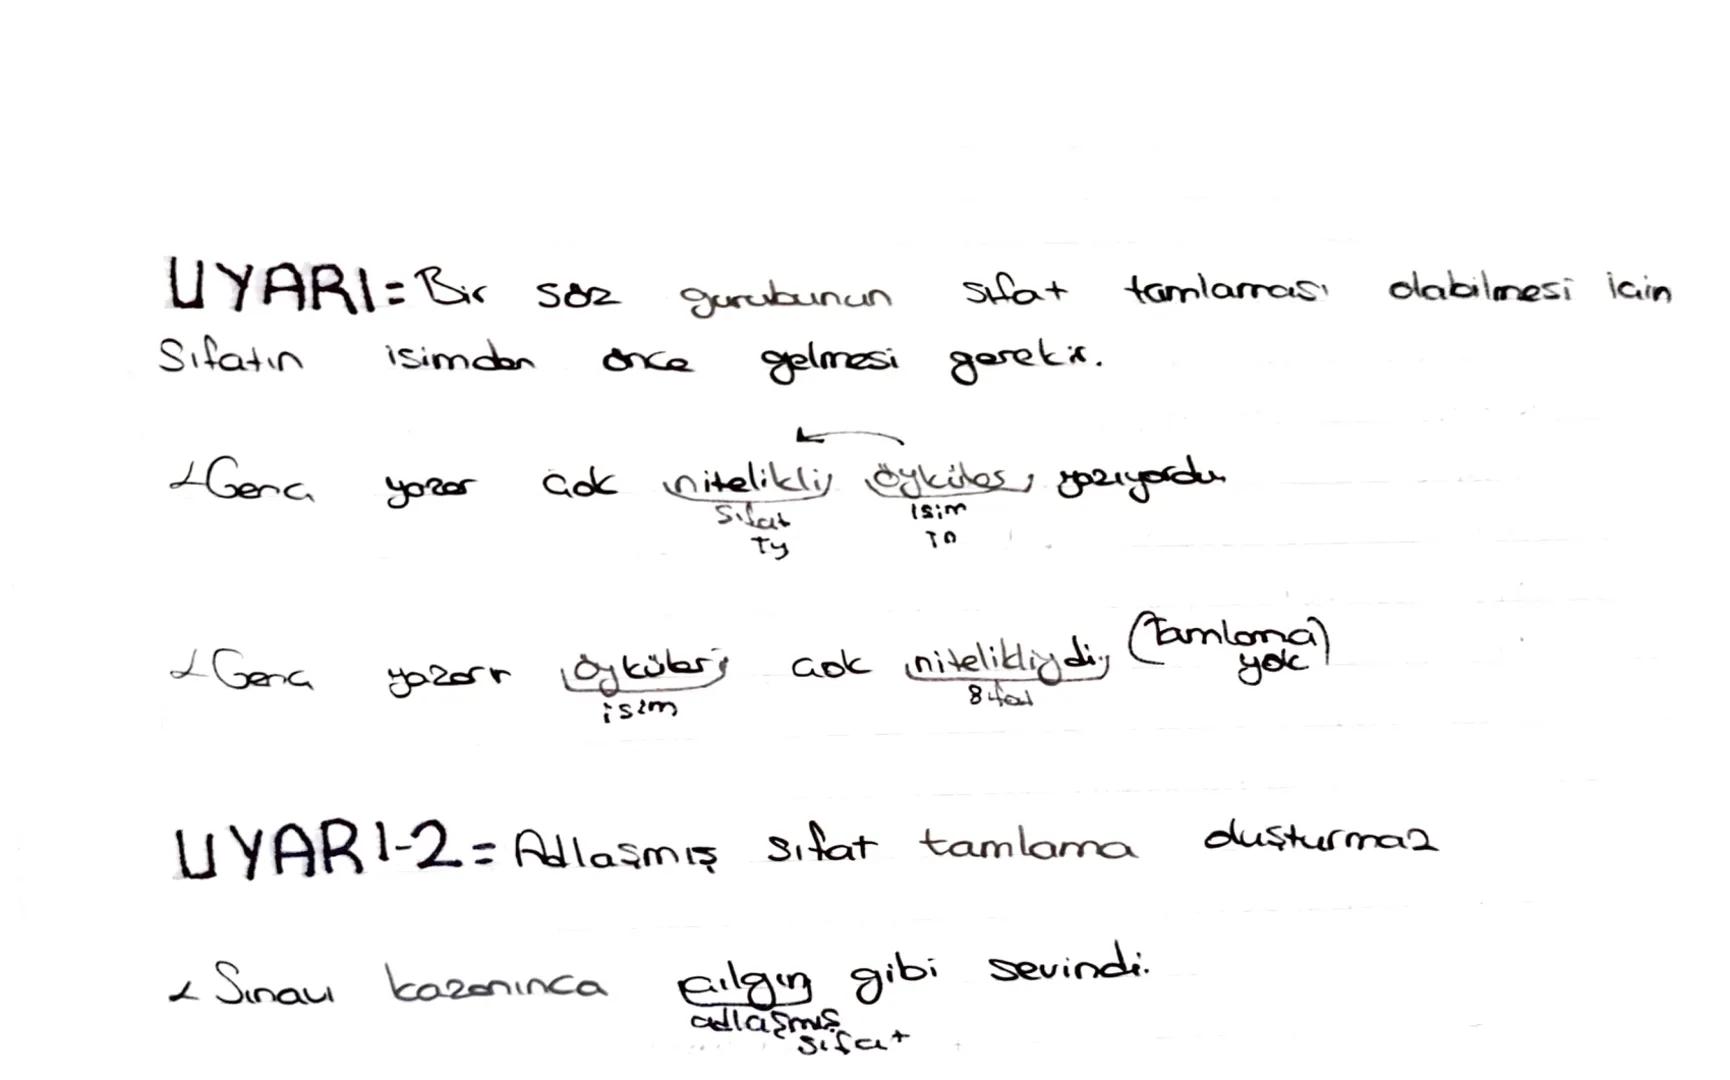 UYARI= Bir söz gurubunun sıfat tamlaması olabilmesi için
Sıfatın isimden önce gelmesi gerekir.
Genç yazar çok nitelikli öyküler yazıyordu
Sıfat isim
Ty Tn
Genç yazarın öyküleri çok nitelikliydi (tamlama yok)
isim sıfat
UYARI-2= Adlaşmış sıfat tamlama oluşturmaz
Sınavı kazanınca çılgın gibi sevindi.
adlaşmış
sıfat